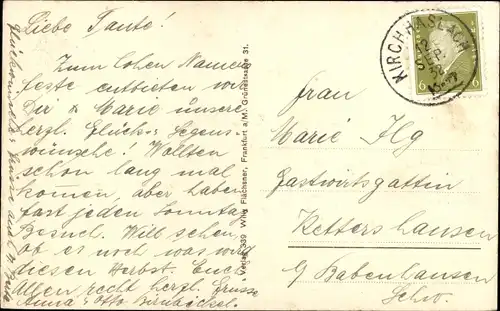 Liebe Tante!
Zum hohen Namens
feste entbieten wir
Dir & Marie unsere
herzl. Glück- & Segens-
wünsche! Wollten
schon lang mal
kommen, aber haben
fast jeden Sonntag
Besuch. Will sehen,
ob es noch was wird
diesen Herbst. Euch
Allen recht herzl. Grüsse
Anna & Otto
Verlag 339 Wilh. Flachsner, Frankfurt a.M. Grünestrasse 31.
KIRCHHASLACH
6 6
Frau
Marie Ilg
Gastwirtsgattin
Kettershausen
b/ Babenhausen
Schw.